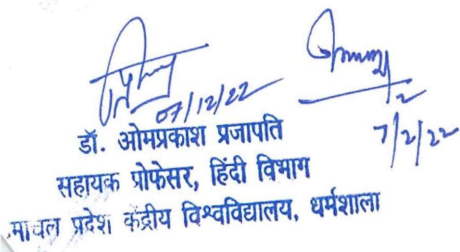 07/12/22
7/2/22
डॉ. ओमप्रकाश प्रजापति
सहायक प्रोफेसर, हिंदी विभाग
माचल प्रदेश केंद्रीय विश्वविद्यालय, धर्मशाला